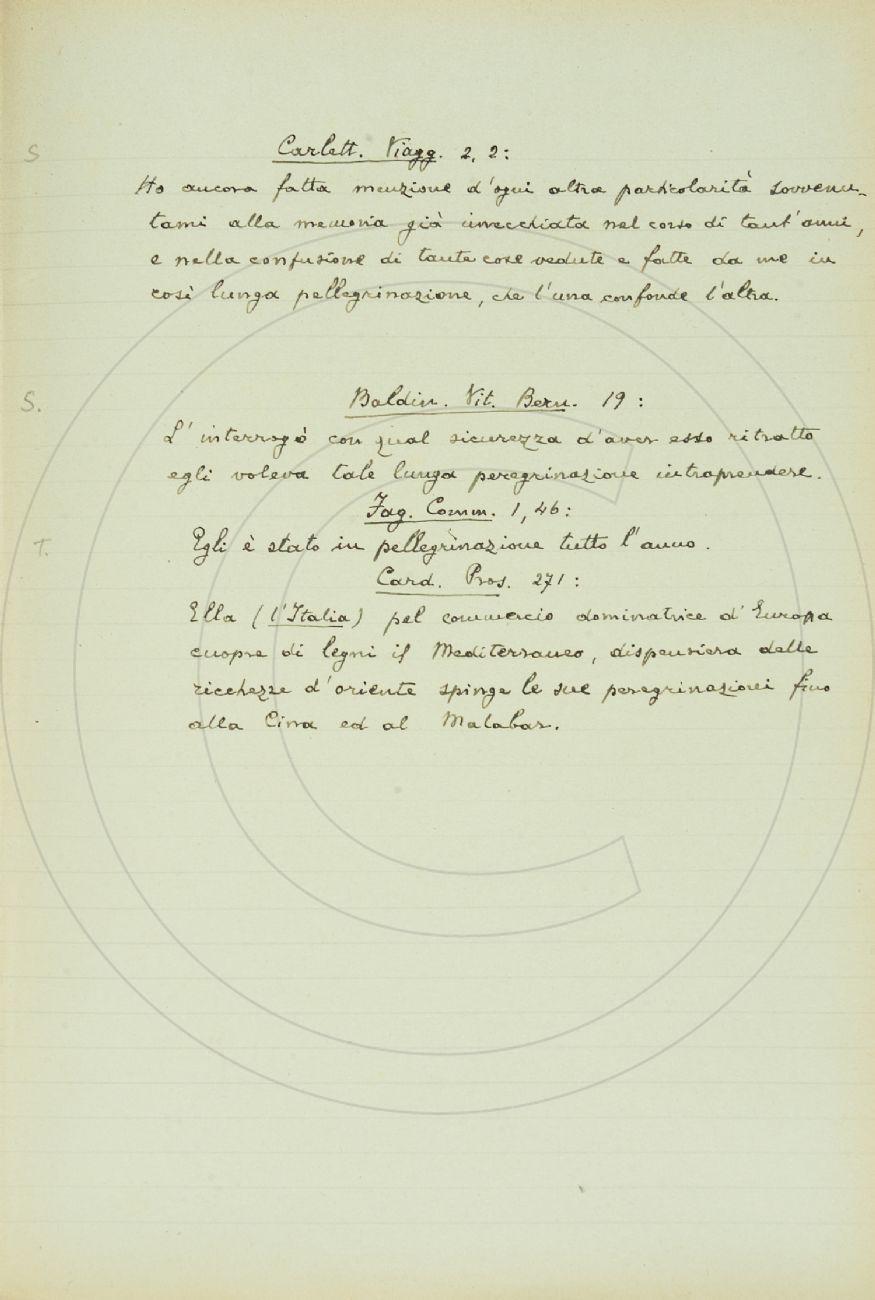 S
Carlett. Viagg. 2, 2:
Ho ancora fatta menzione d'ogni altra particolarità sovvenu-
tami alla memoria già invecchiata nel corso di tant'anni,
e nella confusione di tante cose vedute e fatte da me in
così lunga pellegrinazione, che l'una confonde l'altra.
S.
Baldin. Vit. Bern. 19:
L'interrogò con qual sicurezza d'aver esso ritratto
egli voleva tale lunga peregrinazione intraprendere.
Fag. Comm. 1, 46:
T.
Egli è stato in pellegrinazione tutto l'anno.
Card. Pros. 271:
Ella (l'Italia) pel commercio dominatrice d'Europa
cuopre di legni il Mediterraneo, dispensiera delle
ricchezze d'oriente spinge le sue peregrinazioni fino
alla Cina ed al Malabar.